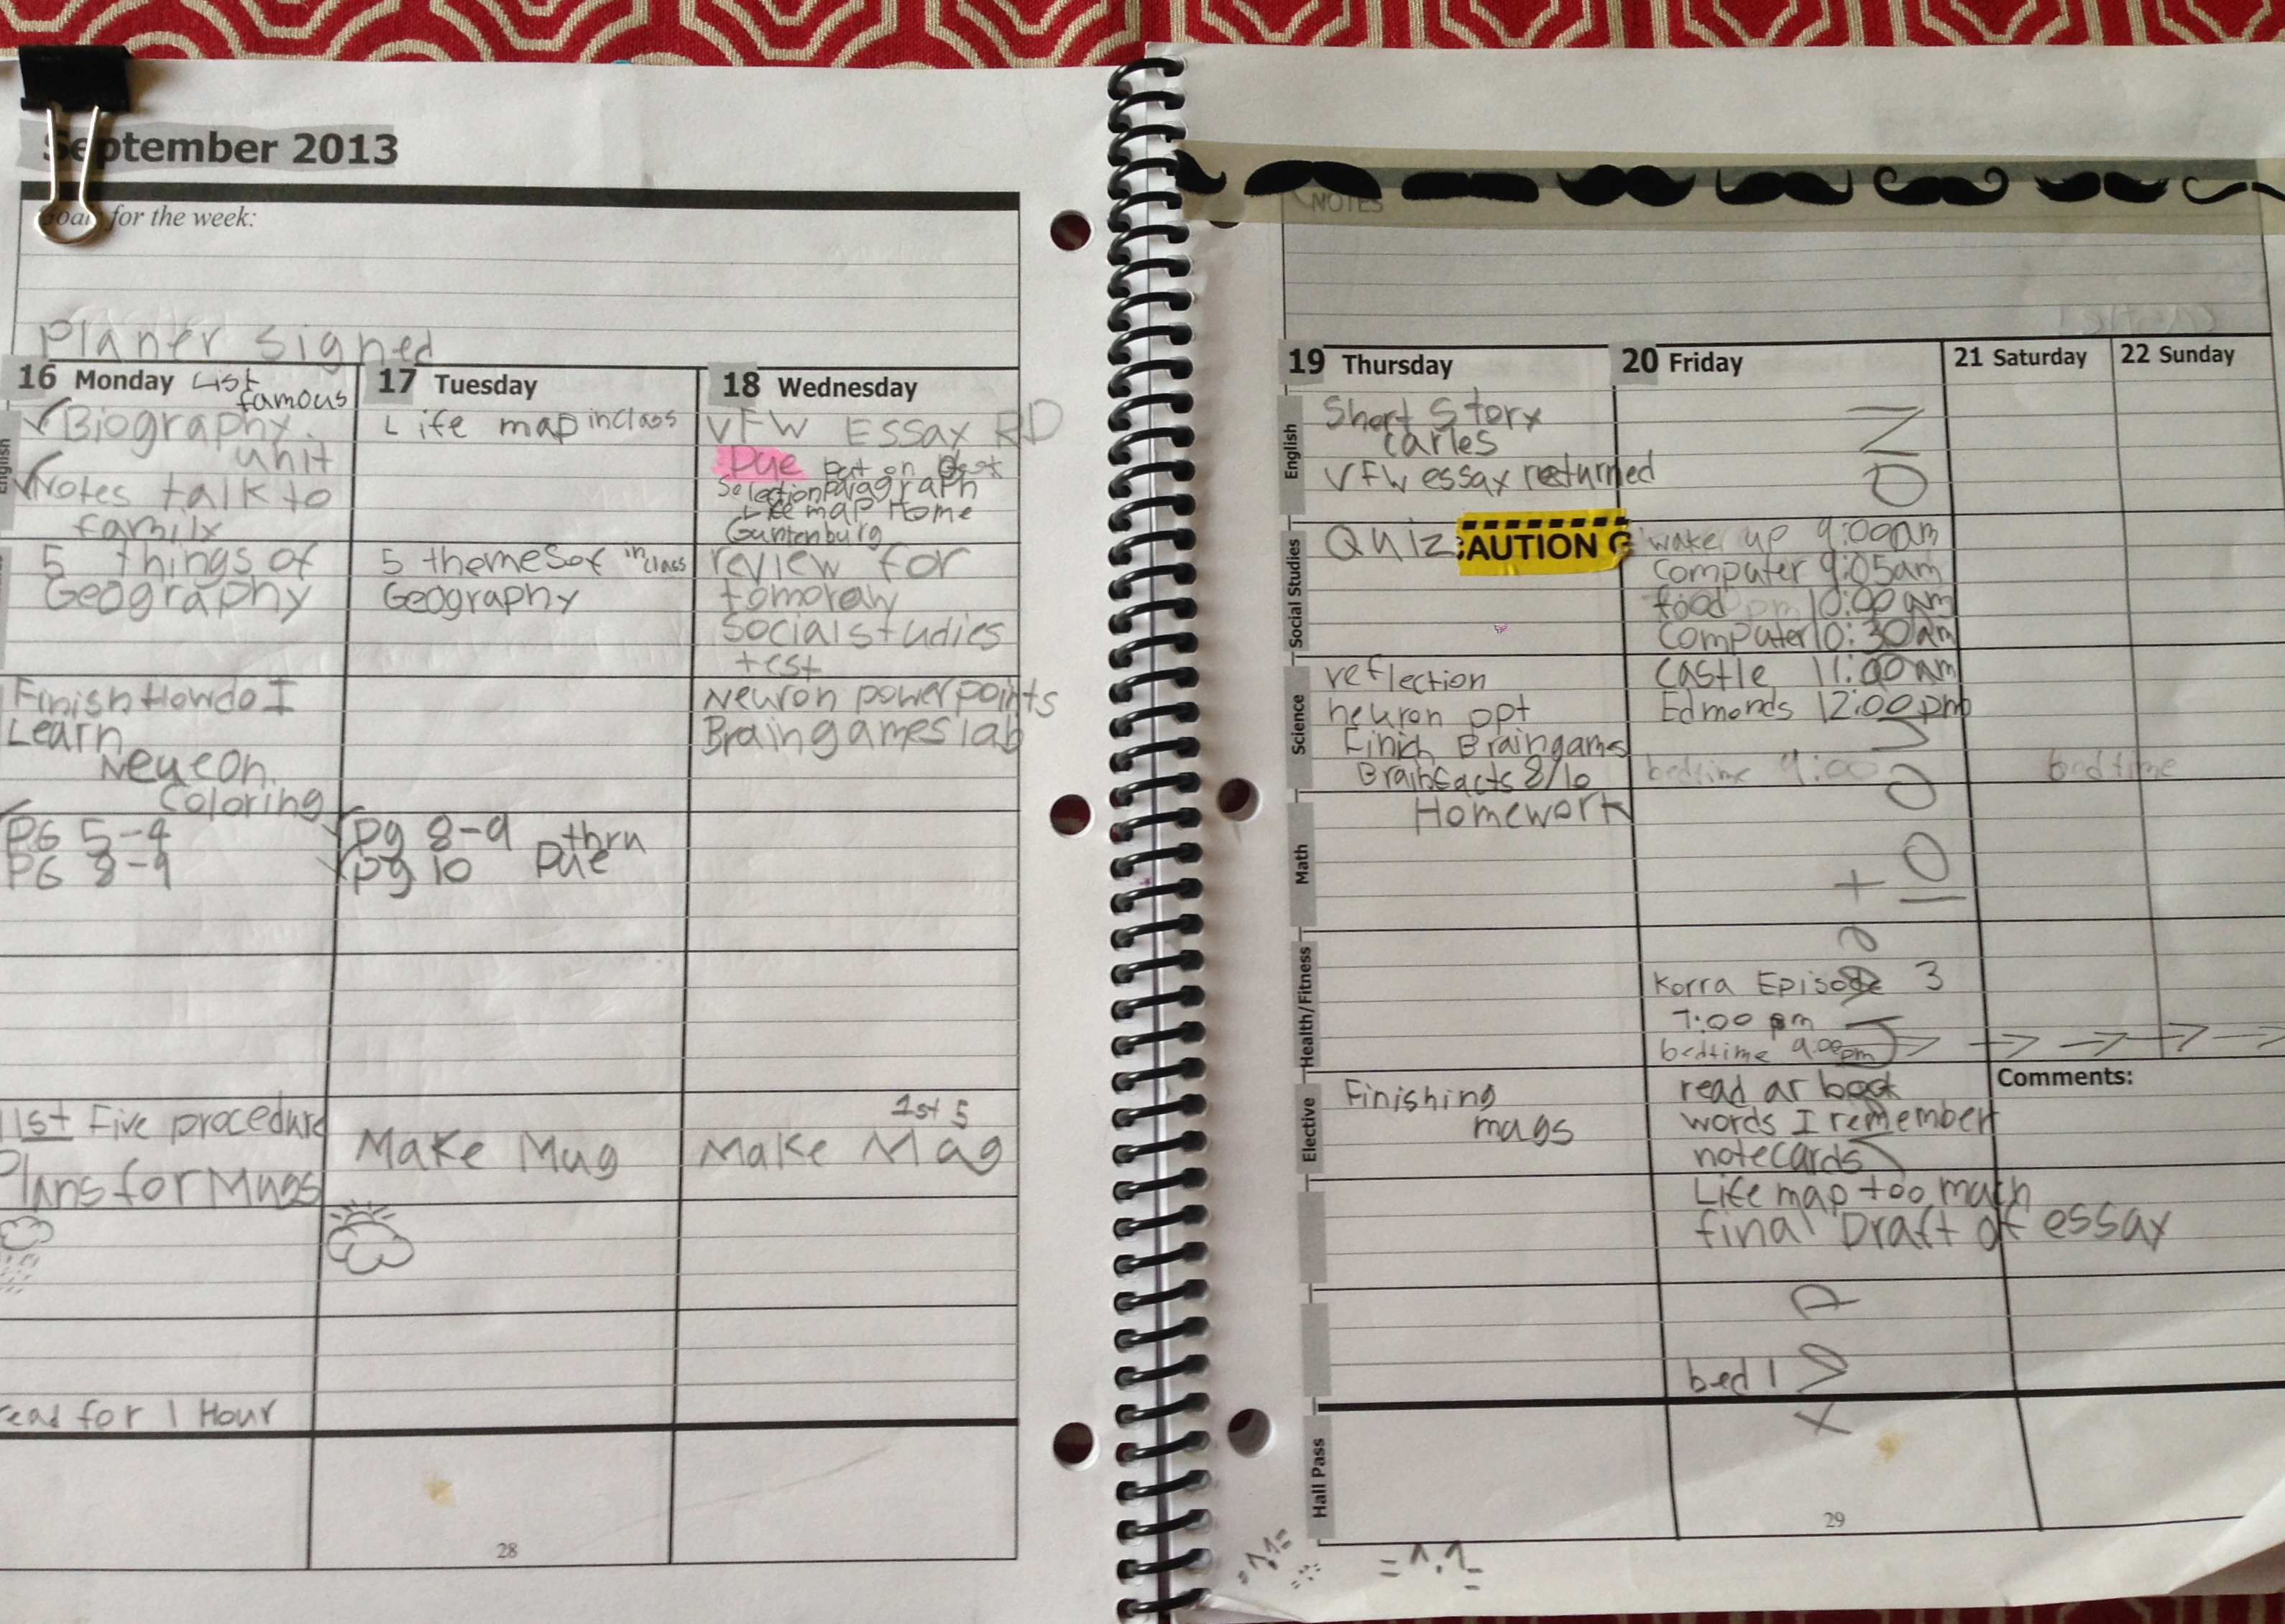 September 2013
for the week:
Planer signed
16 Monday List
famous
Biography
unit
Notes talk to
family
5 things of
Geography
Finish How do I
Learn
Neueon
Coloring
PG 5-4
PG 8-9
list Five procedure
Plans for Mugs
read for 1 Hour
17 Tuesday
Life map in class
5 themes of in class
Geography
pg 8-9 thru
pg 10 Due
Make Mug
28
18 Wednesday
VFW Essay RD
Due put on desk
Selection paragraph
Life map Home
Guntenburg
review for
tomoraw
Social studies
test
Neuron powerpoints
Braingames lab
1st 5
Make Mag
NOTES
19 Thursday
English
Short Story
carles
VFW essay returned
Social Studies
Quiz CAUTION C
Science
reflection
neuron ppt
Finich Braingams
Brainfacts 8/10
Homework
Math
Health/Fitness
Elective
Finishing
mags
Hall Pass
20 Friday
NO
wake up 9:00am
computer 9:05am
food 10:00am
Computer 10:30am
Castle 11:00am
Edmonds 12:00pm
bedtime 9:00
Korra Episode 3
7:00 pm
bedtime 9:00pm
read ar book
words I remember
notecards
Life map too much
final Draft of essay
bed 1
29
21 Saturday
22 Sunday
bedtime
Comments: